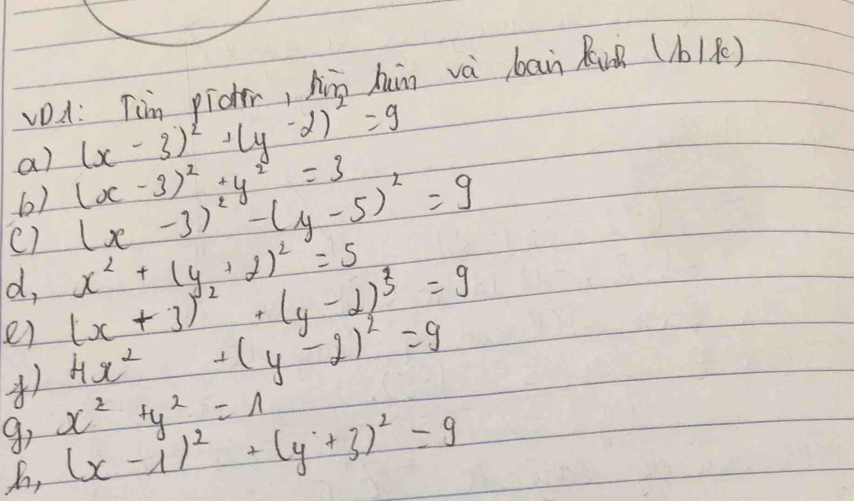 VD1: Tìm ptđtr, tìm và bán kính (b/k)
a) (x - 3)² + (y - 2)² = 9
b) (x - 3)² + y² = 3
c) (x - 3)² - (y - 5)² = 9
d, x² + (y + 2)² = 5
e) (x + 3)² + (y - 2)³ = 9
f) 4x² + (y - 2)² = 9
g, x² + y² = 1
h, (x - 1)² + (y + 3)² = 9